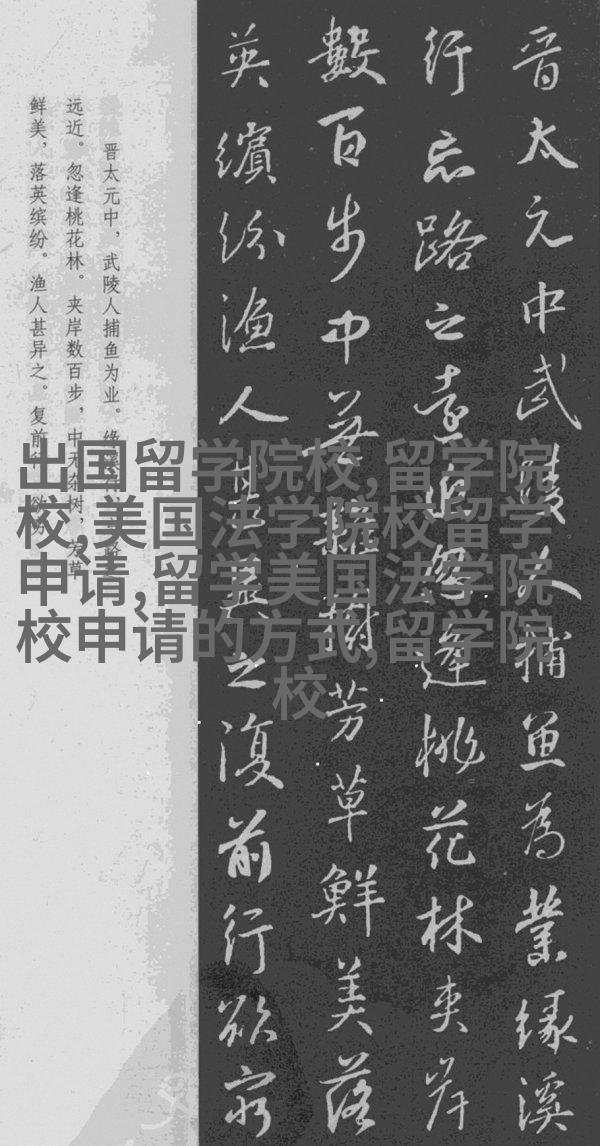 晋太元中武陵人捕魚為業緣溪
行忘路之遠近忽逢桃花林夾岸
數百步中無雜樹芳草鮮美落
英繽紛漁人甚異之復前行欲窮
晋太元中，武陵人捕鱼为业。缘溪行
远近。忽逢桃花林。夹岸数百步，中无杂树，芳草
鲜美，落英缤纷。渔人甚异之。复前行，欲穷
出国留学院校,留学院
校,美国法学院校留学
申请,留学美国法学院
校申请的方式,留学院
校